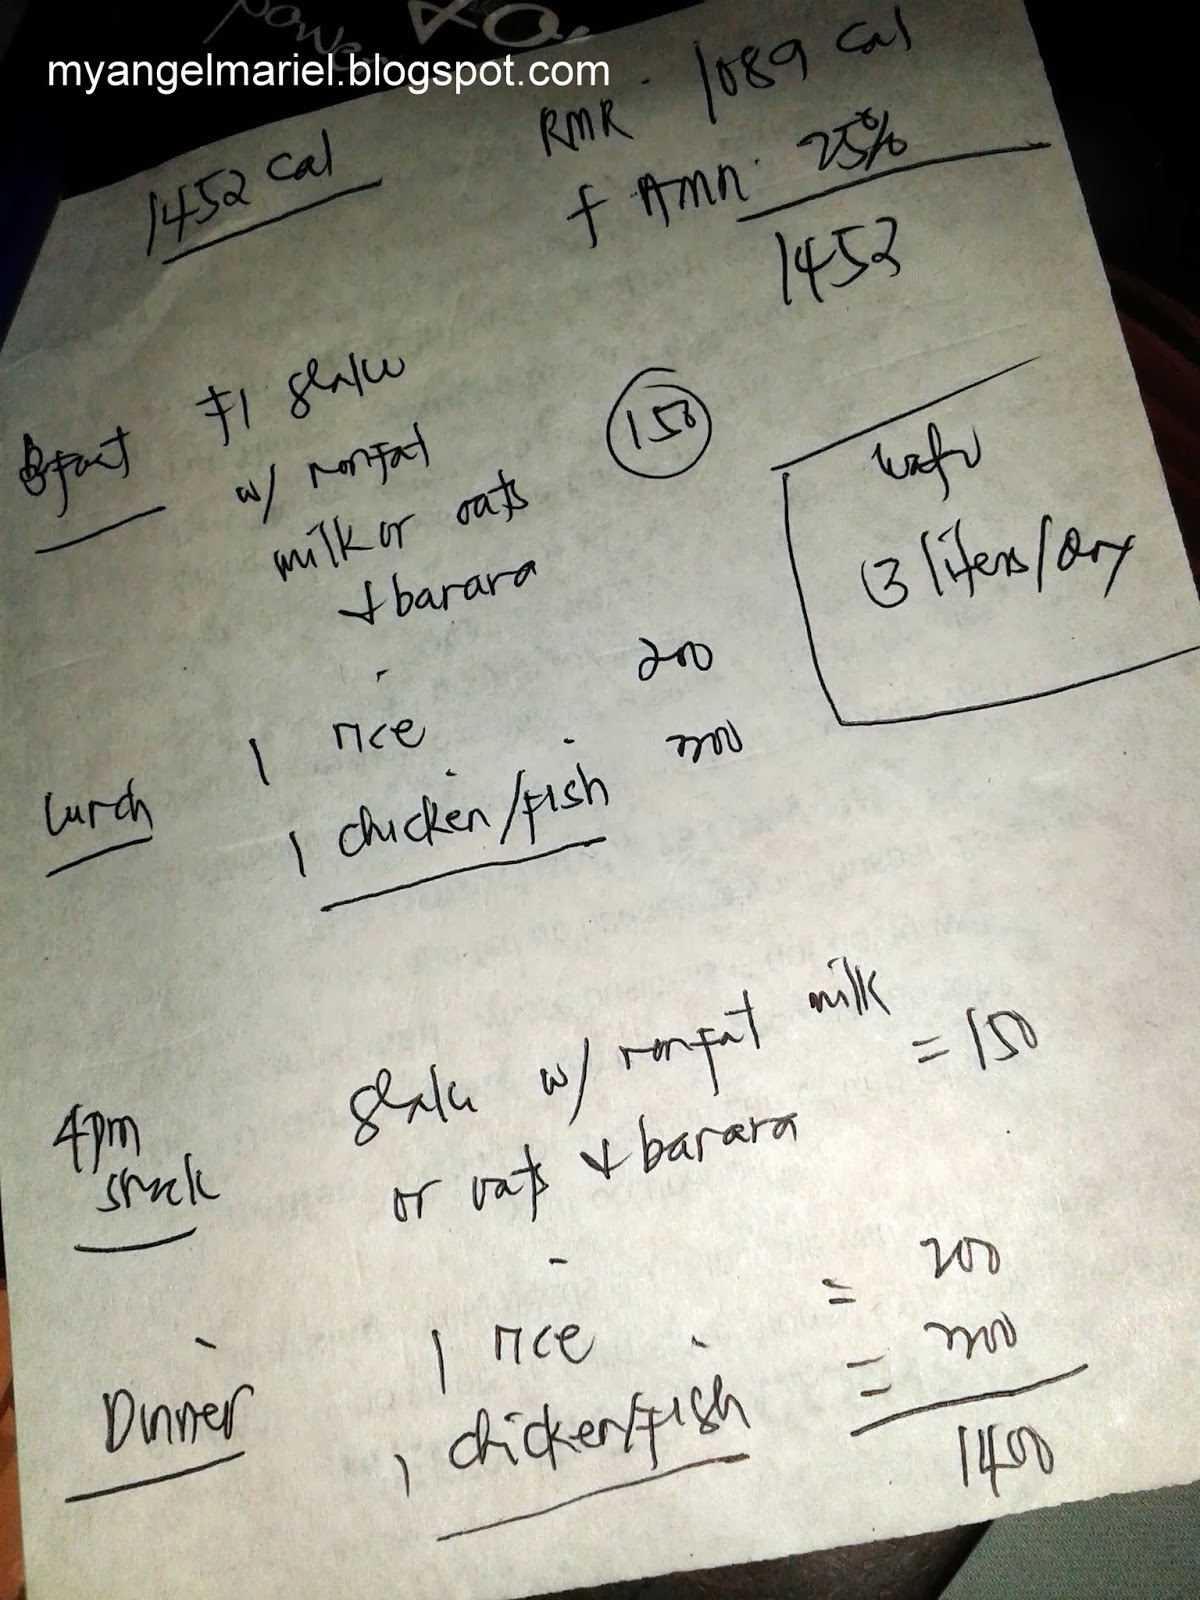 power
myangelmariel.blogspot.com
1452 cal
RMR - 1089 cal
+ 25%
1452
Bfast
F1 shake
w/ nonfat
milk or oats
+ banana
150
water
3 liters/day
Lunch
1 rice 200
1 chicken/fish 300
4pm
snack
shake w/ nonfat milk
or oats + banana = 150
Dinner
1 rice = 200
1 chicken/fish = 300
1400